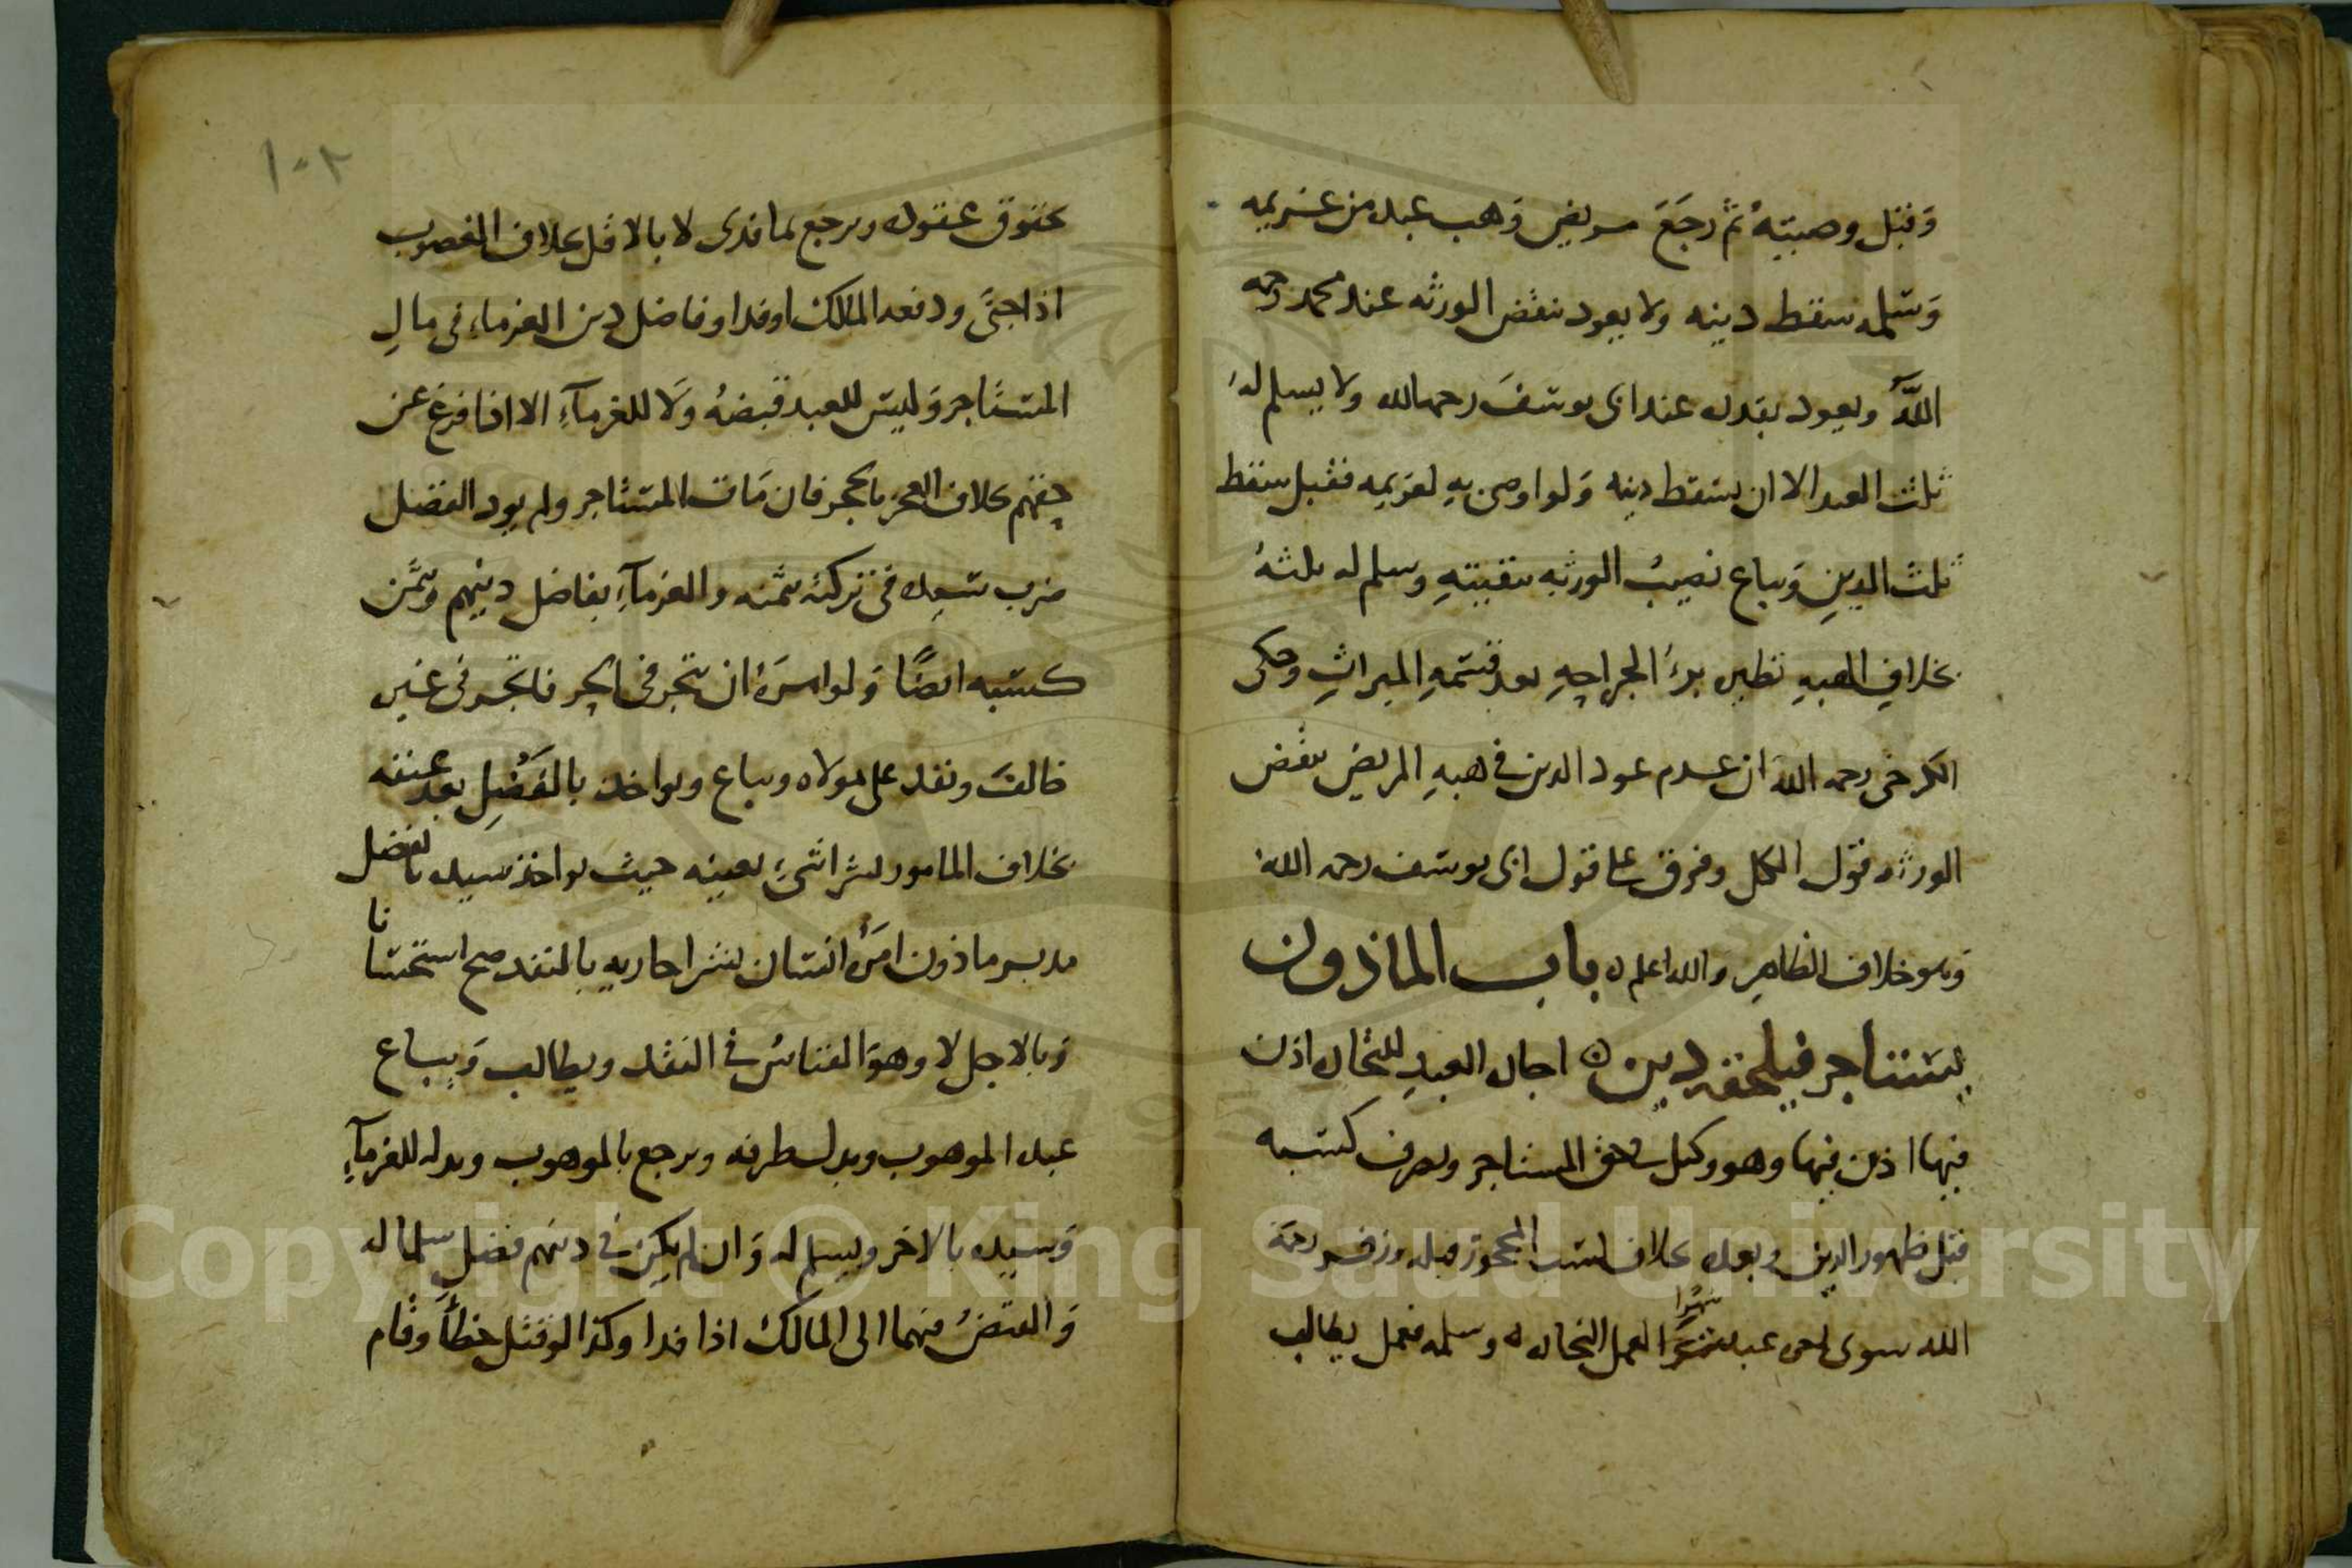 وقبل وصيته ثم رجع مريض وهب عبده من غريمه
وسلمه سقط دينه ولا يعود بنقض الورثه عند محمد رحمه
الله ويعود بقدره عند ابى يوسف رحمه الله ولا يسلم له
ثلث العبد الا ان يسقط دينه ولو اوصى به لغريمه فقبل سقط
ثلث الدين ويباع نصيب الورثه ببقيته وسلم له ثلثه
بخلاف الهبه نظيره برء الجراحه بعد قسمه الميراث وحكى
الكرخى رحمه الله ان عدم عود الدين فى هبه المريض بنقض
الورثه قول الكل وفرق على قول ابى يوسف رحمه الله
وهو خلاف الظاهر والله اعلم باب الماذون
يستاجر فيلحقه دين اجاره العبد للتجاره اذن
فيها اذن فيها وهو وكيل فى حق المستاجر ويصرف كسبه
قبل ظهور الدين وبعده بخلاف كسب المحجور قبله وزفر رحمه
الله سوى عبده شهرا لعمل التجاره وسلمه فعمل يطالب
١٠٢
بحقوق عقوده ويرجع بما فدى لا بالاقل بخلاف المغصوب
اذا جنى ودفعه المالك او فدا وفاضل دين الغرماء فى مال
المستاجر وليس للعبد قبضه ولا للغرماء الا اذا فرغ عن
حقهم بخلاف الحجر فان مات المستاجر ولم يود الفضل
ضرب سيده فى تركته بثمنه والغرماء بفاضل دينهم وثمن
كسبه ايضا ولو امره ان يتجر فى البحر فاتجر فى غيره
خالف ونفذ على مولاه ويباع ويواخذ بالفضل بعد عتقه
بخلاف المامور بشرا شىء بعينه حيث يواخذ سيده بالفضل
مدبر ماذون امره انسان بشرا جاريه بالنقد صح استحسانا
وبالاجل لا وهو القياس فى النقد ويطالب ويباع
عبده الموهوب وبدل طرفه ويرجع بالموهوب وبدله للغرماء
وسيده بالاخر ويسلم له وان لم يكن فى دينهم فضل سلما له
والقبض منهما الى المالك اذا فدا وكذا لو قتل خطأ وقام